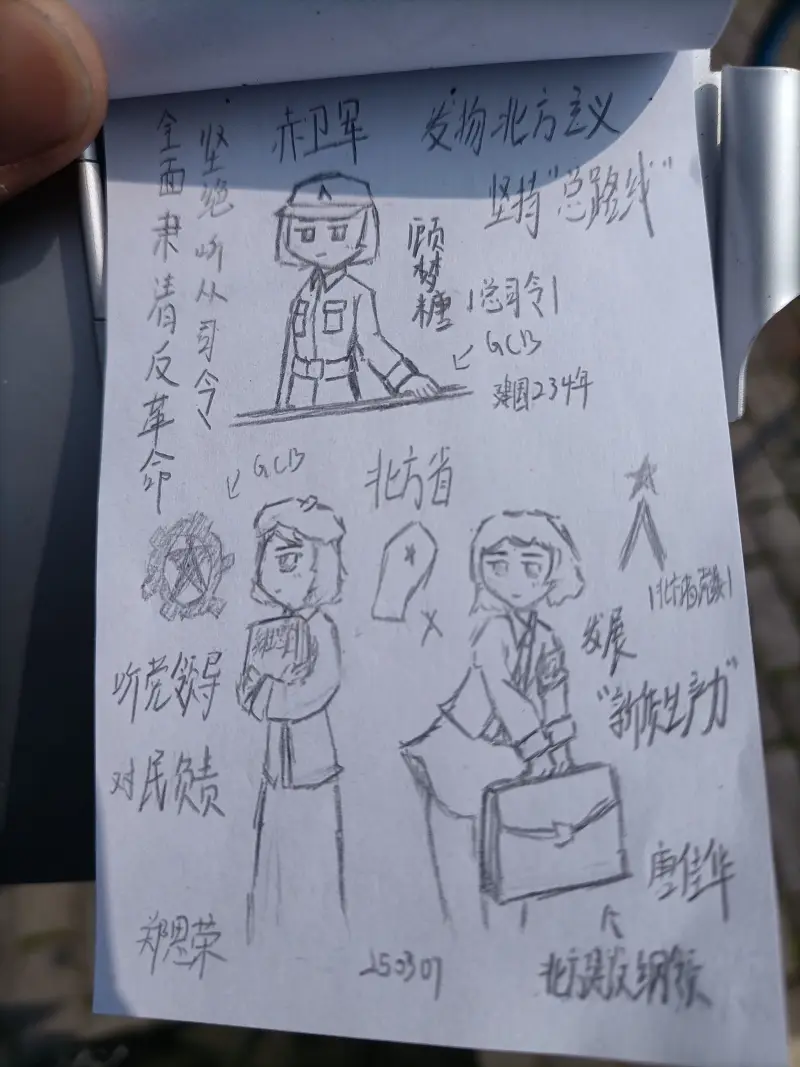 全面肃清反革命
坚绝听从司令
赤卫军
发扬北方主义
坚持“总路线”
顾梦糖
|总司令|
GCB
建国234年
GCB
北方省
听党领导
对民负责
发展
“新质生产力”
郑思荣
唐佳华
250307